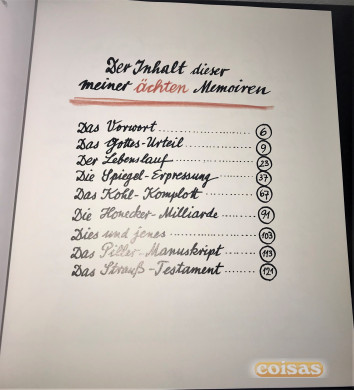 Der Inhalt dieser
meiner ächten Memoiren
Das Vorwort 6
Das Gottes-Urteil 9
Der Lebenslauf 23
Die Spiegel-Erpressung 37
Das Kohl-Komplott 67
Die Honecker-Milliarde 91
Dies und jenes 103
Das Piller-Manuskript 113
Das Strauß-Testament 121
coisas